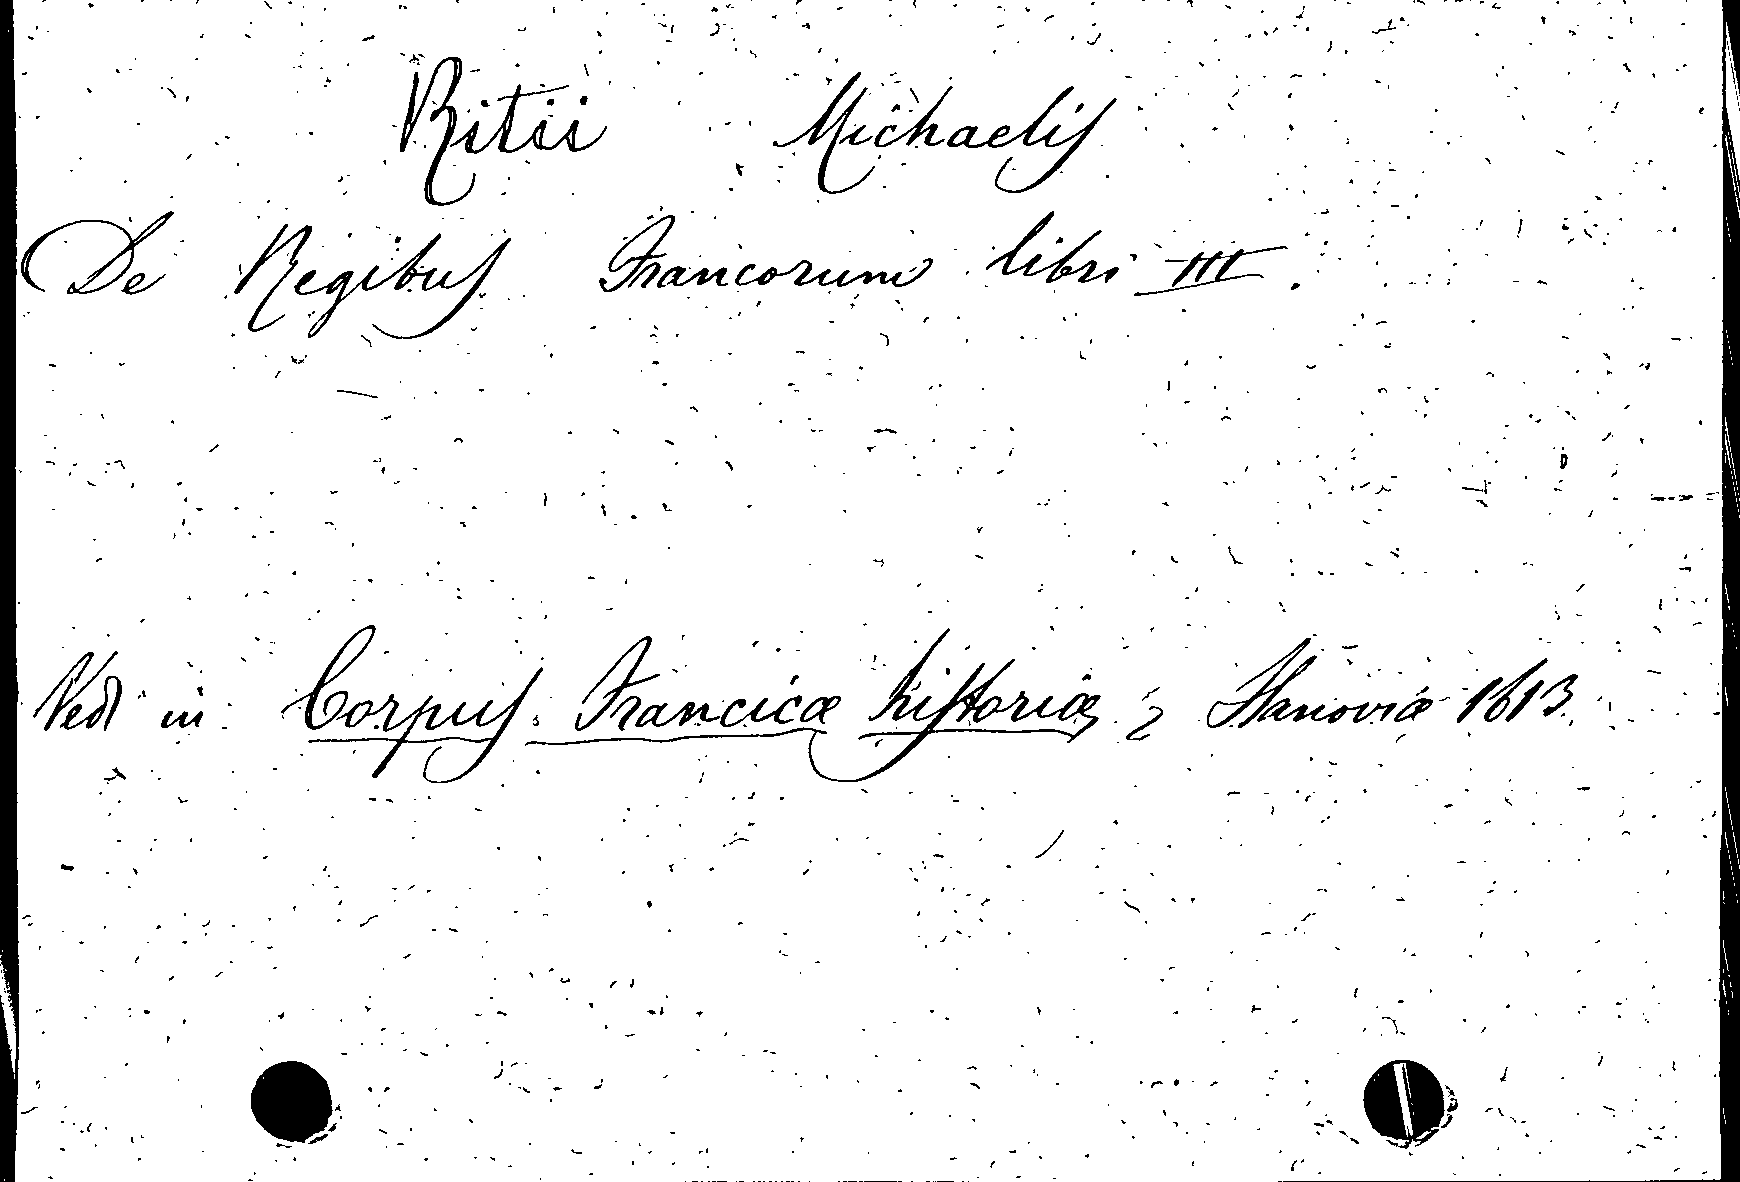 Ritii Michaelis
De Regibus Francorum libri III.
Vedi in Corpus Francicæ historiæ, Hanoviæ 1613.